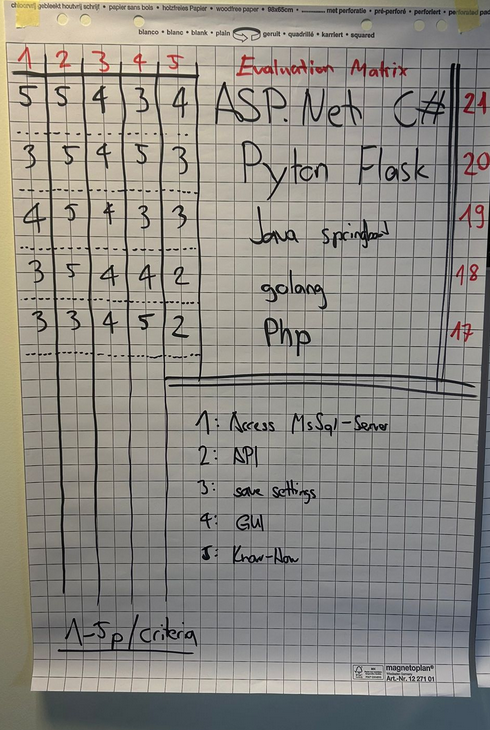 chloorvrij gebleekt houtvrij schrift • papier sans bois • holzfreies Papier • woodfree paper • 98x65cm • met perforatie • pré-perforé • perforiert •
blanco • blanc • blank • plain geruit • quadrillé • kariert • squared
1 2 3 4 5 Evaluation Matrix
5 5 4 3 4 ASP.Net C# 21
3 5 4 5 3 Pyton Flask 20
4 5 4 3 3 Java springboot 19
3 5 4 4 2 golang 18
3 3 4 5 2 Php 17
1: Access MsSql-Server
2: API
3: save settings
4: GUI
5: Know-How
1-5p/criteria
magnetoplan®
Art.-Nr. 12 271 01